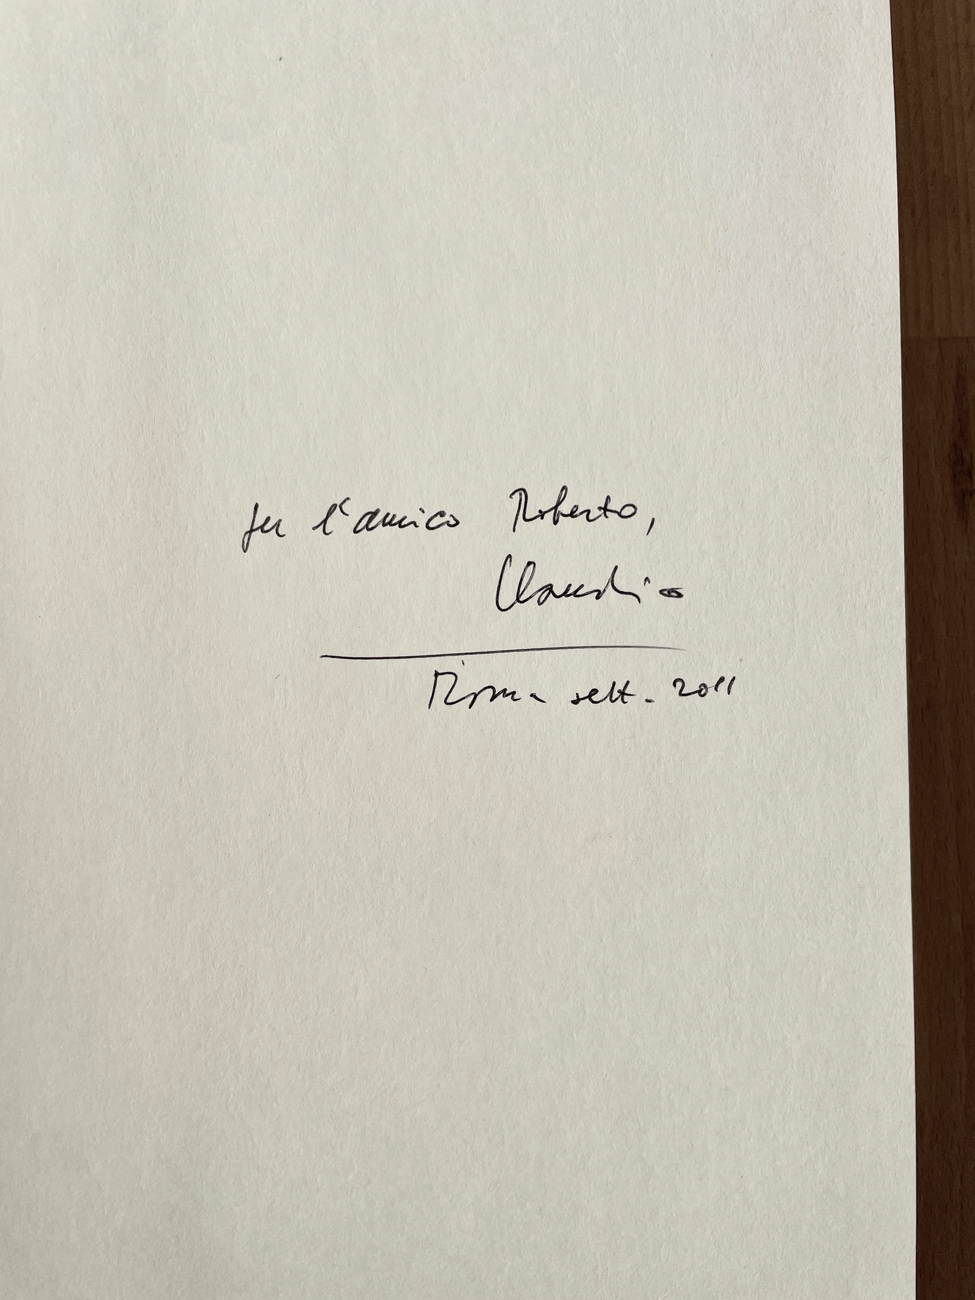 per l'amico Roberto,
Claudio
Roma sett. 2011